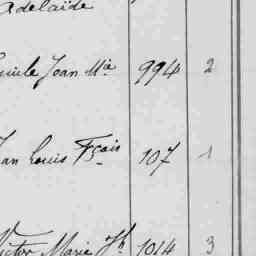 Adelaide
Jean Mie 994 2
Jean Louis Fçois 107 1
Victor Marie Jh 1014 3